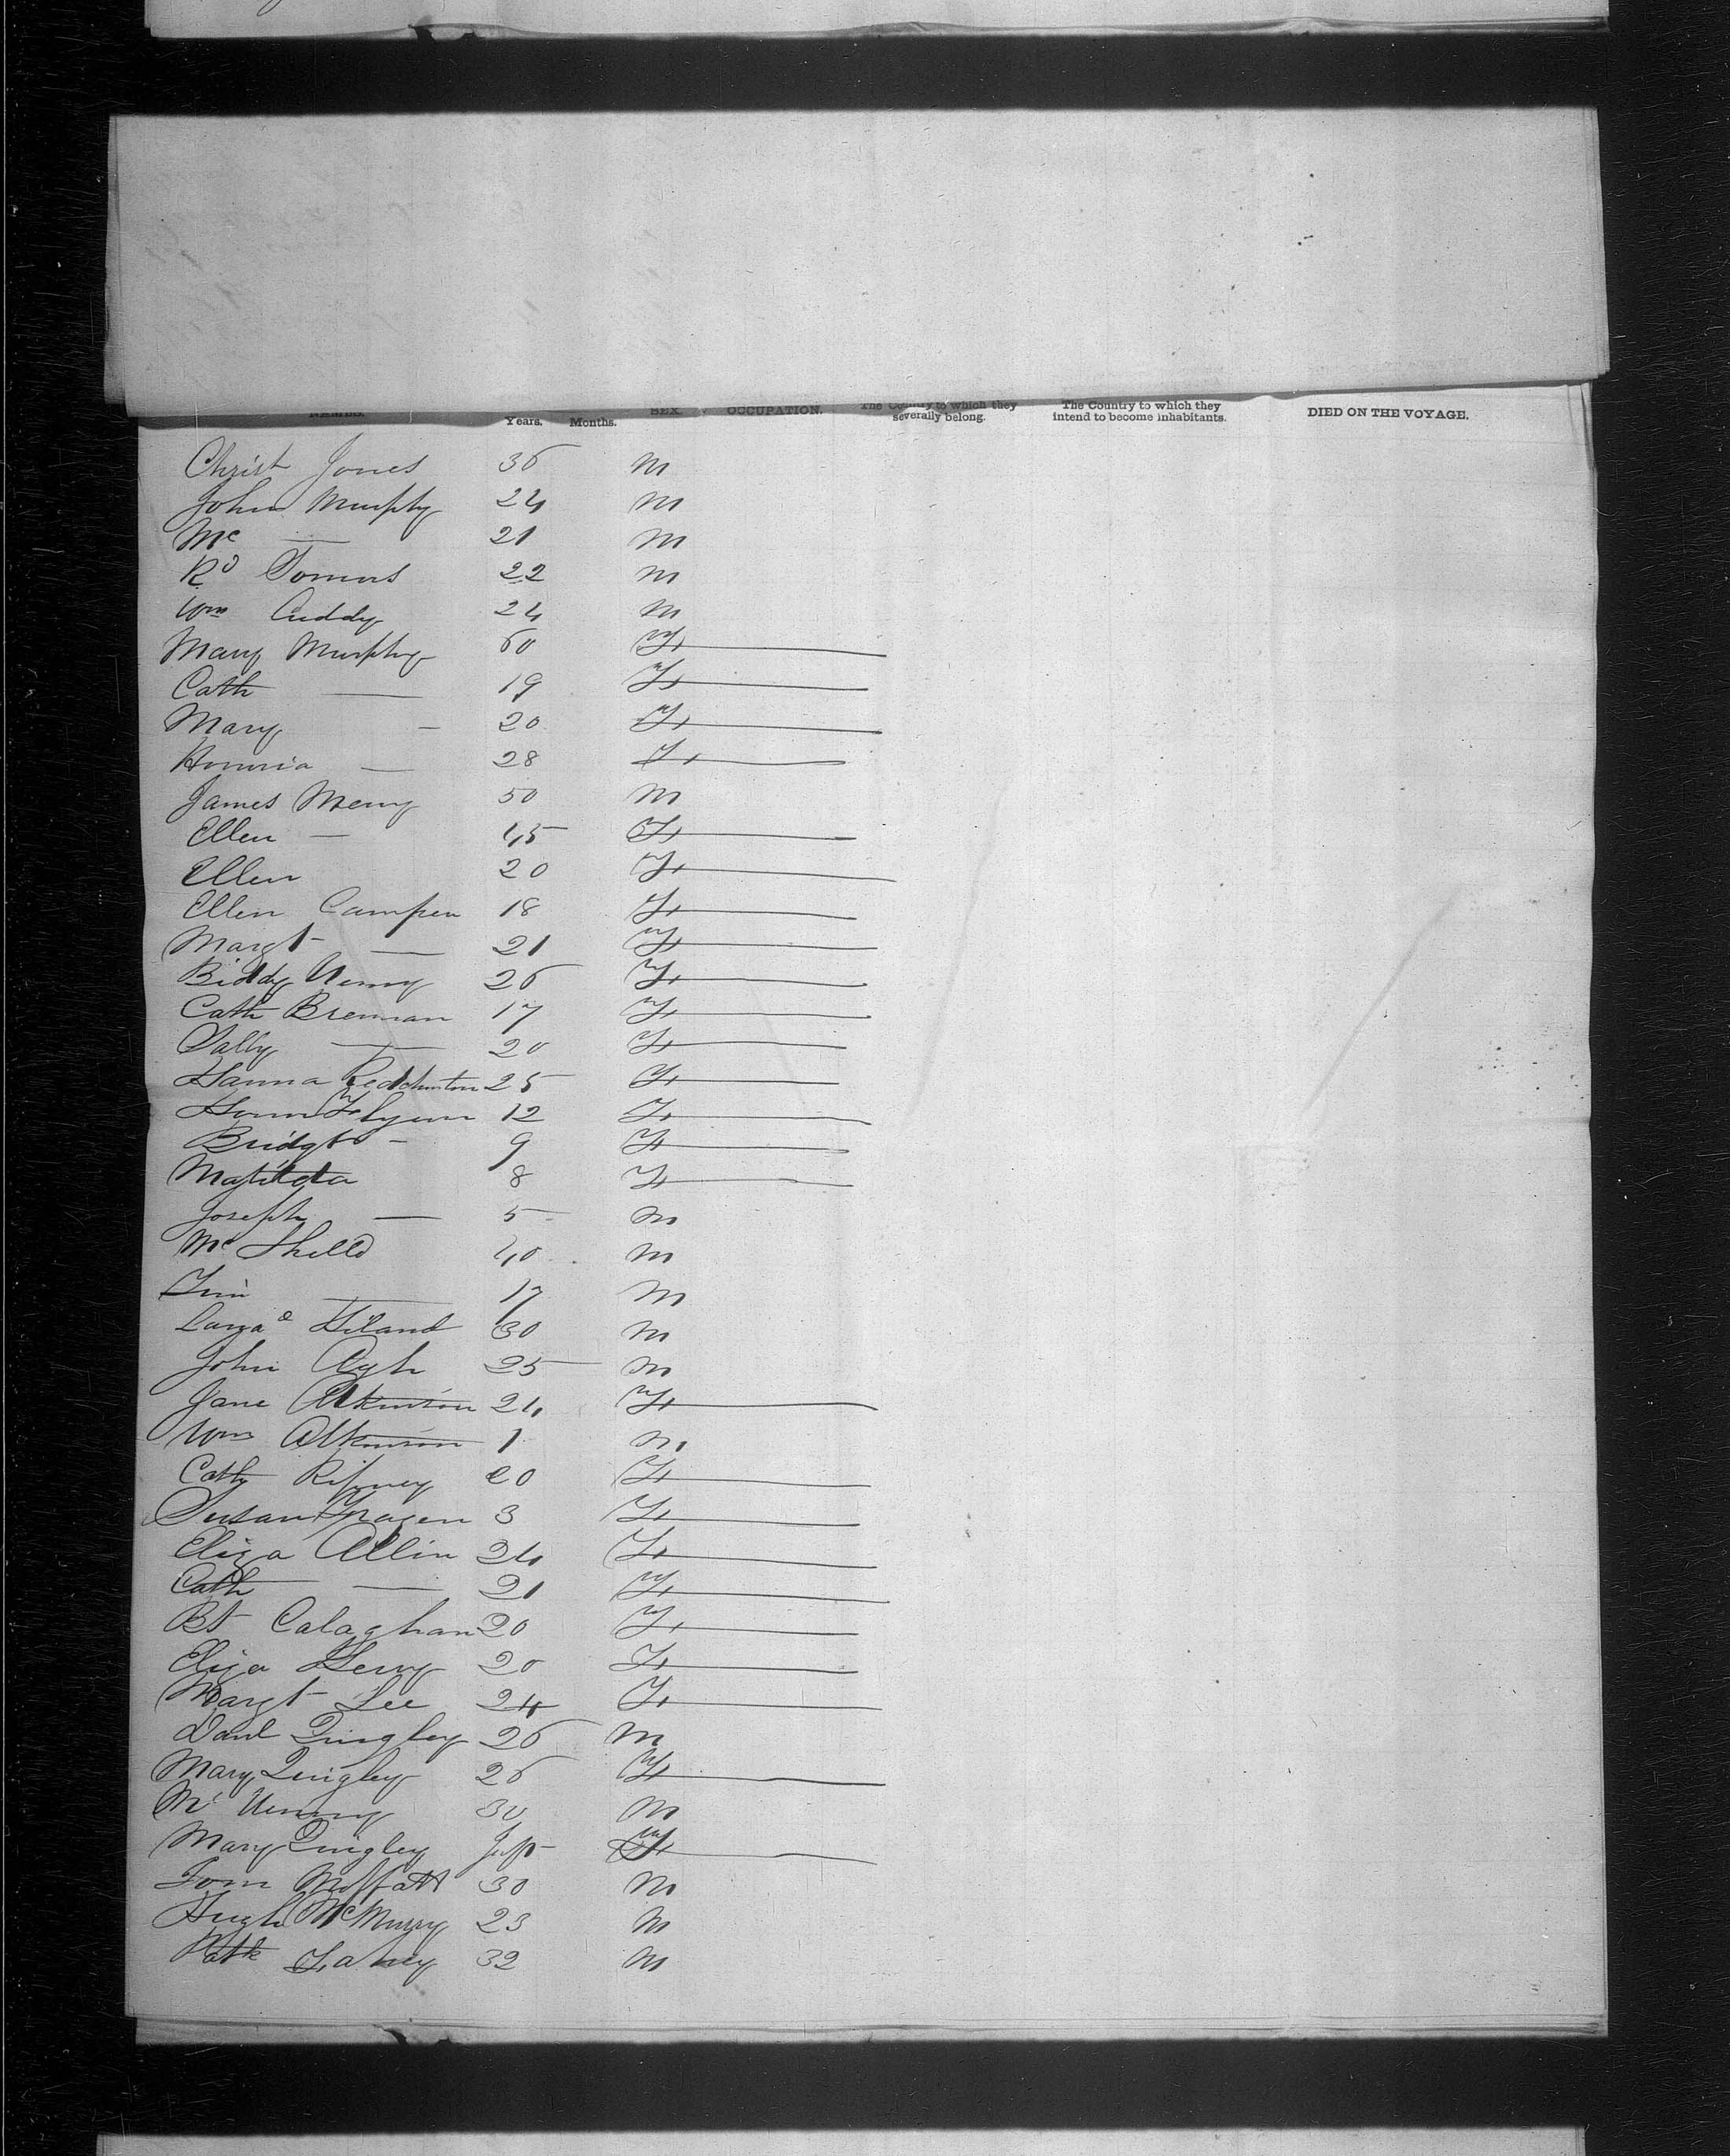 NAMES. Years. Months. SEX. OCCUPATION. The Country to which they severally belong. The Country to which they intend to become inhabitants. DIED ON THE VOYAGE.
Christ Jones 36 M
John Murphy 24 M
Mc — 21 M
Rd 22 M
Wm Cuddy 24 M
Mary Murphy 60 F
Cath — 19 F
Mary — 20 F
Honoria — 28 F
James 50 M
Ellen — 45 F
Ellen 20 F
Ellen Campen 18 F
Margt — 21 F
Biddy 26 F
Cath Brennan 17 F
Sally — 20 F
Hanna 25 F
12 F
Bridgt — 9 F
Matilda 8 F
Joseph — 5 M
Mc 40 M
Tim — 17 M
Hiland 30 M
John 25 M
Jane Atkinson 24 F
Wm Atkinson 1 M
Cath 20 F
Susan 3 F
Eliza Allin 24 F
Cath — 21 F
Bt Calaghan 20 F
Eliza 20 F
Margt Lee 24 F
Danl Quigley 26 M
Mary Quigley 26 F
30 M
Mary Quigley Inft F
Tom Moffatt 30 M
Hugh McMurry 23 M
Patk 32 M